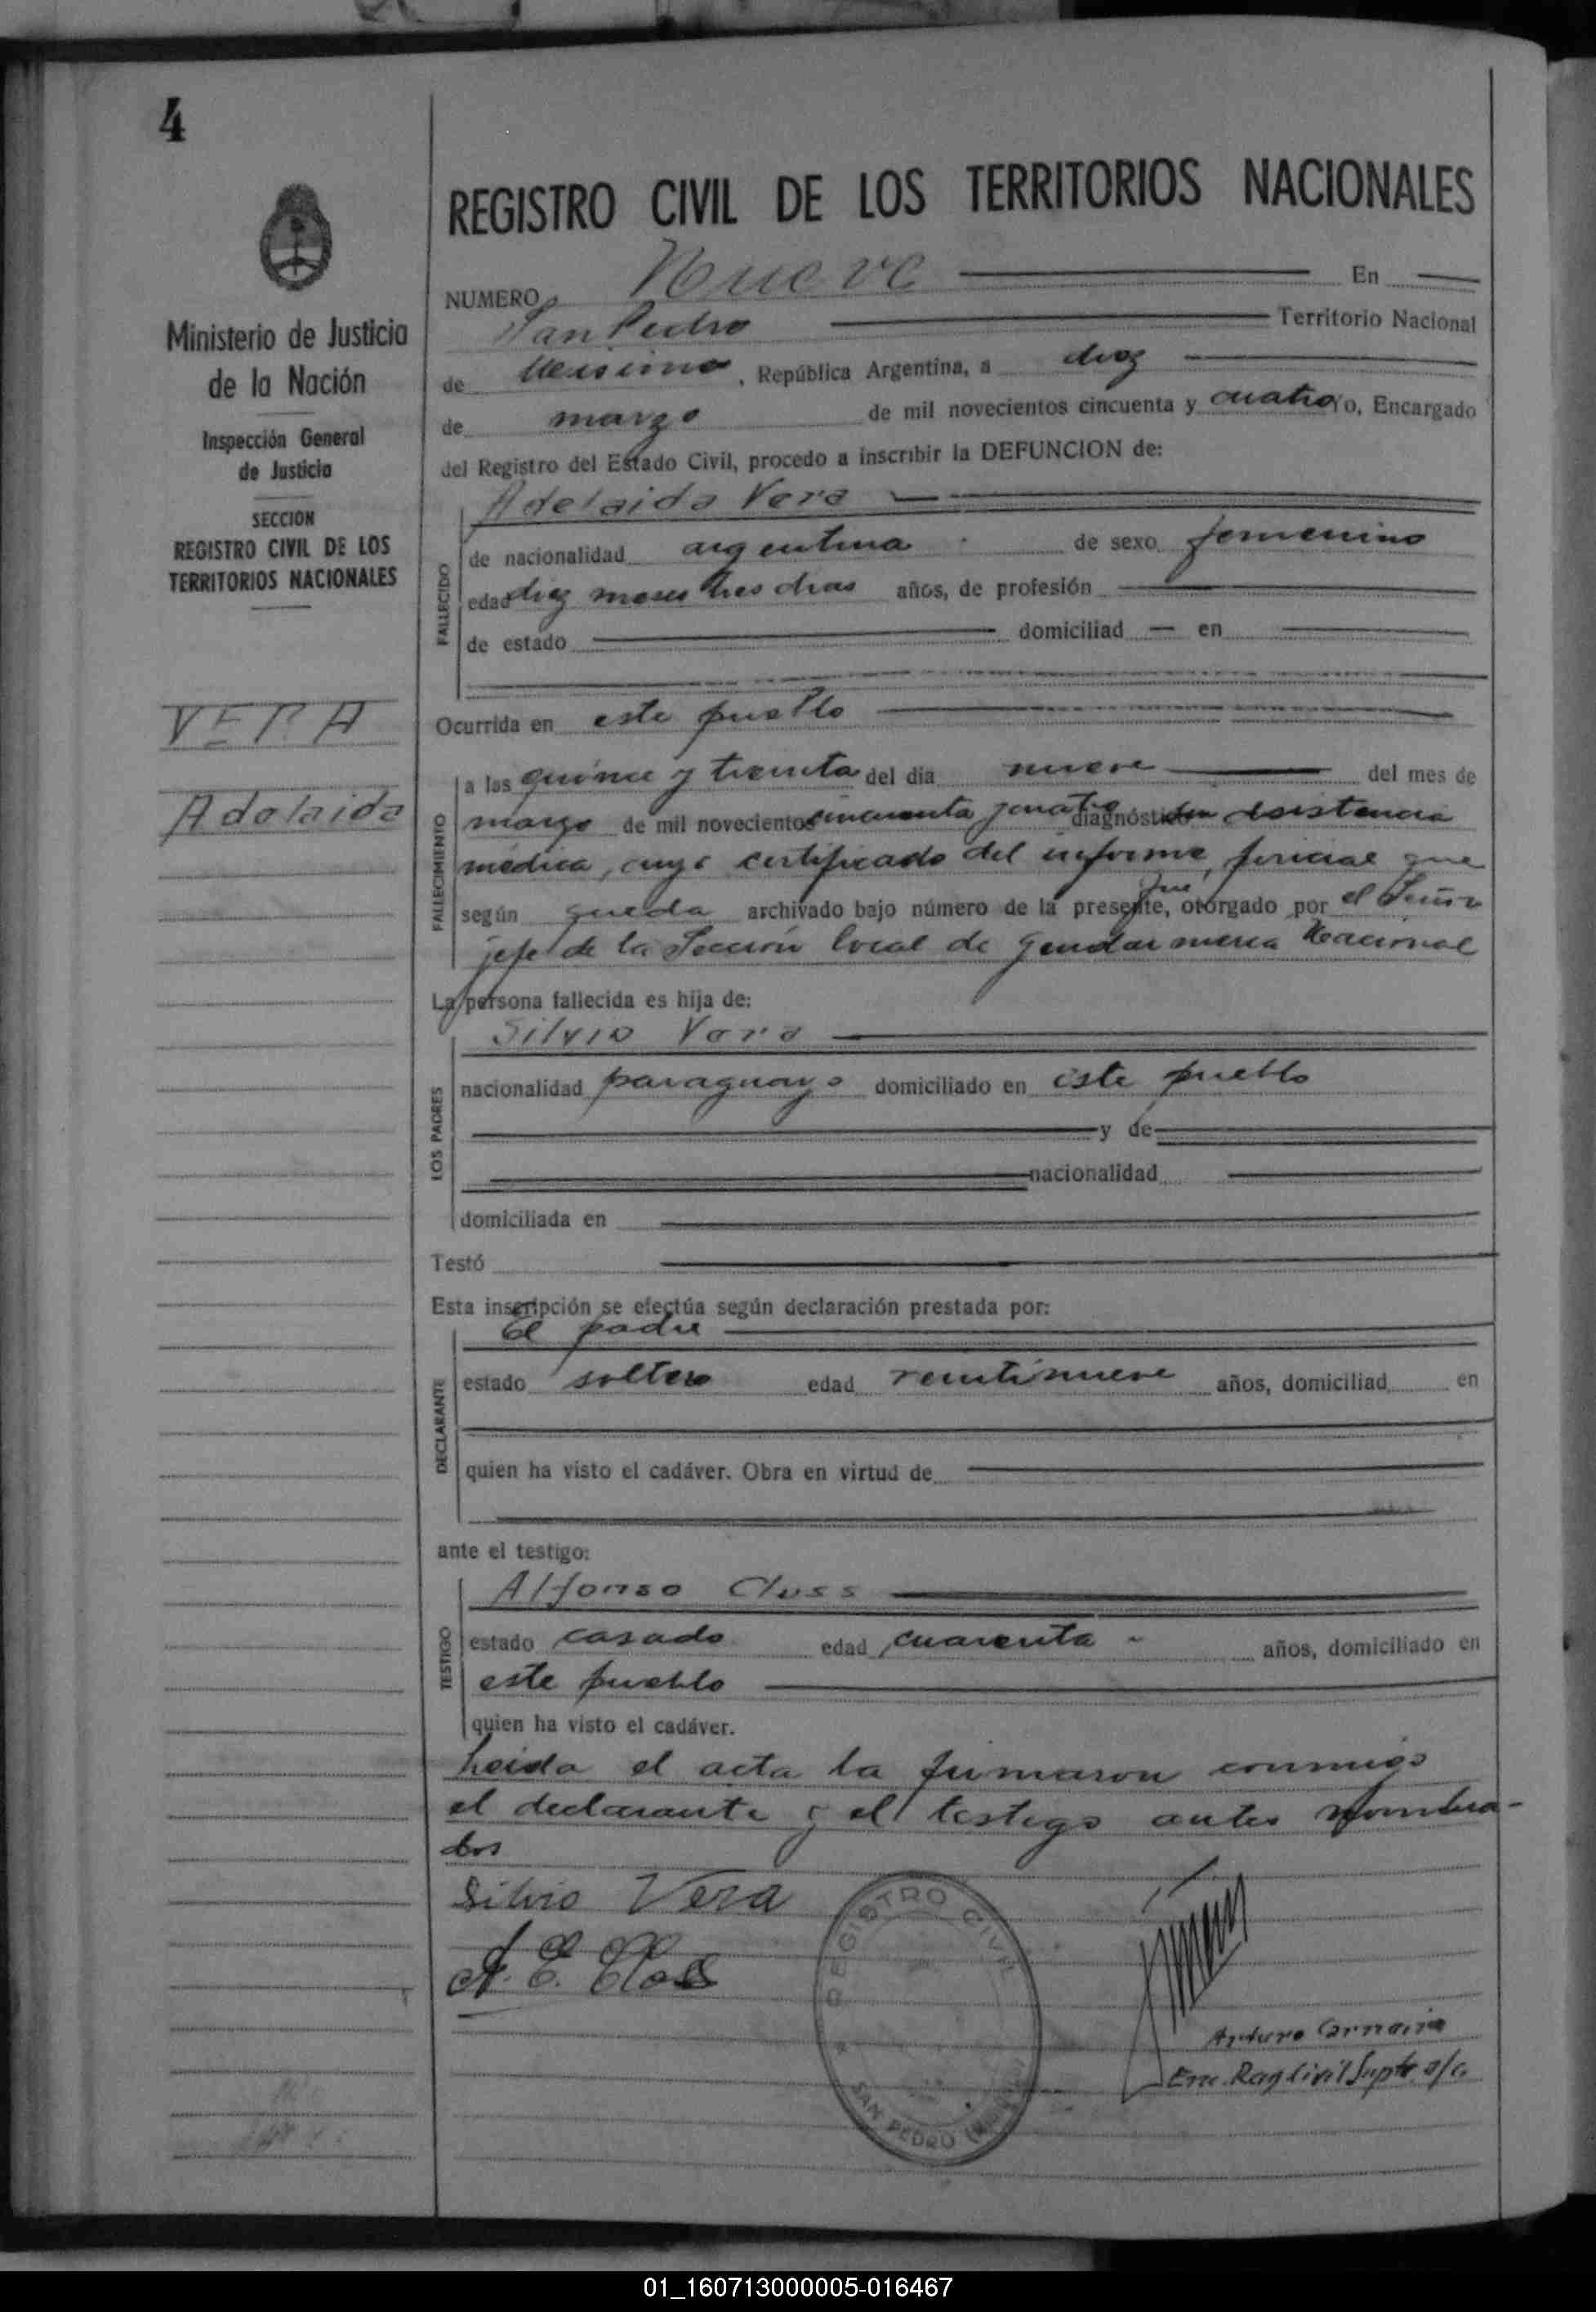 4
REGISTRO CIVIL DE LOS TERRITORIOS NACIONALES
Ministerio de Justicia
de la Nación
Inspección General
de Justicia
SECCION
REGISTRO CIVIL DE LOS
TERRITORIOS NACIONALES
VERA
Adelaida
NUMERO Nueve En
San Pedro Territorio Nacional
de Misiones, República Argentina, a diez
de marzo de mil novecientos cincuenta y cuatro Yo, Encargado
del Registro del Estado Civil, procedo a inscribir la DEFUNCION de:
Adelaida Vera
FALLECIDO
de nacionalidad argentina de sexo femenino
edad diez meses tres dias años, de profesión
de estado domiciliad en
Ocurrida en este pueblo
FALLECIMIENTO
a las quince y treinta del día nueve del mes de
marzo de mil novecientos cincuenta y cuatro diagnóstico sin asistencia
médica, cuyo certificado del informe pericial que
según queda archivado bajo número de la presente, fue otorgado por el Señor
jefe de la Sección local de Gendarmeria Nacional
La persona fallecida es hija de:
Silvio Vera
LOS PADRES
nacionalidad paraguayo domiciliado en este pueblo
y de
nacionalidad
domiciliada en
Testó
Esta inscripción se efectúa según declaración prestada por:
El padre
DECLARANTE
estado soltero edad veintinueve años, domiciliad en
quien ha visto el cadáver. Obra en virtud de
ante el testigo:
Alfonso Closs
TESTIGO
estado casado edad cuarenta años, domiciliado en
este pueblo
quien ha visto el cadáver.
Leida el acta la firmaron conmigo
el declarante y el testigo antes nombra-
dos
Silvio Vera
A. E. Closs
REGISTRO CIVIL
SAN PEDRO
Arturo
Enc. Reg Civil Supte a/c
01_160713000005-016467